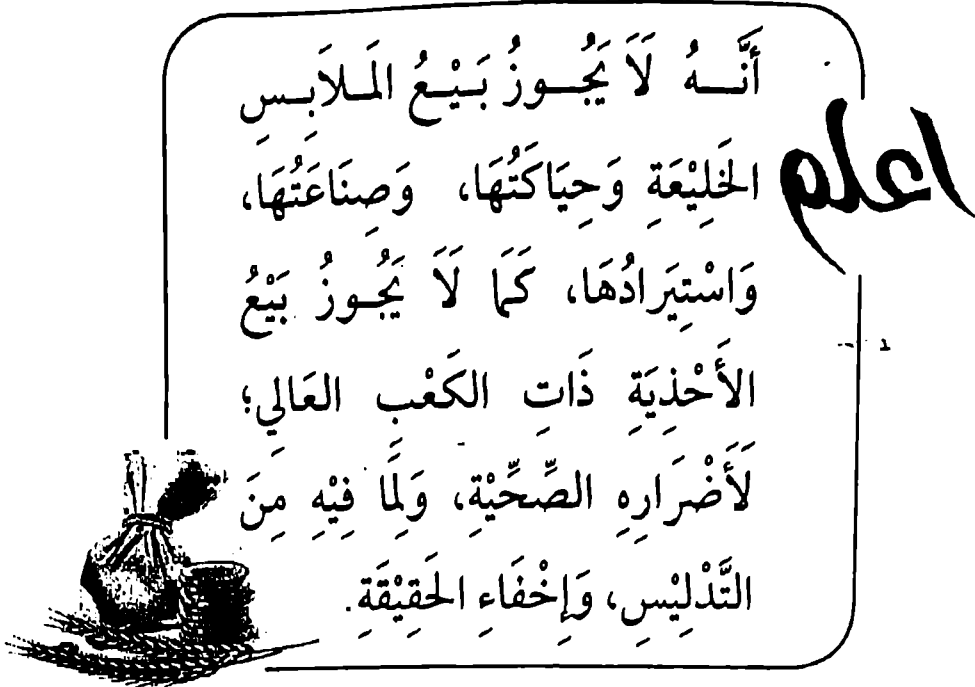 اعلم
أَنَّـــهُ لَا يَجُـــوزُ بَـيْـعُ المَـلَابِـسِ
الخَلِيْعَةِ وَحِيَاكَتُهَا، وَصِنَاعَتُهَا،
وَاسْتِيَرادُهَا، كَمَا لَا يَجُـوزُ بَيْعُ
الأَحْذِيَةِ ذَاتِ الكَعْبِ العَالِي؛
لَأَضْرَارِهِ الصِّحِّيْةِ، وَلِمَا فِيْهِ مِنَ
التَّدْلِيْسِ، وَإِخْفَاءِ الحَقِيْقَةِ.